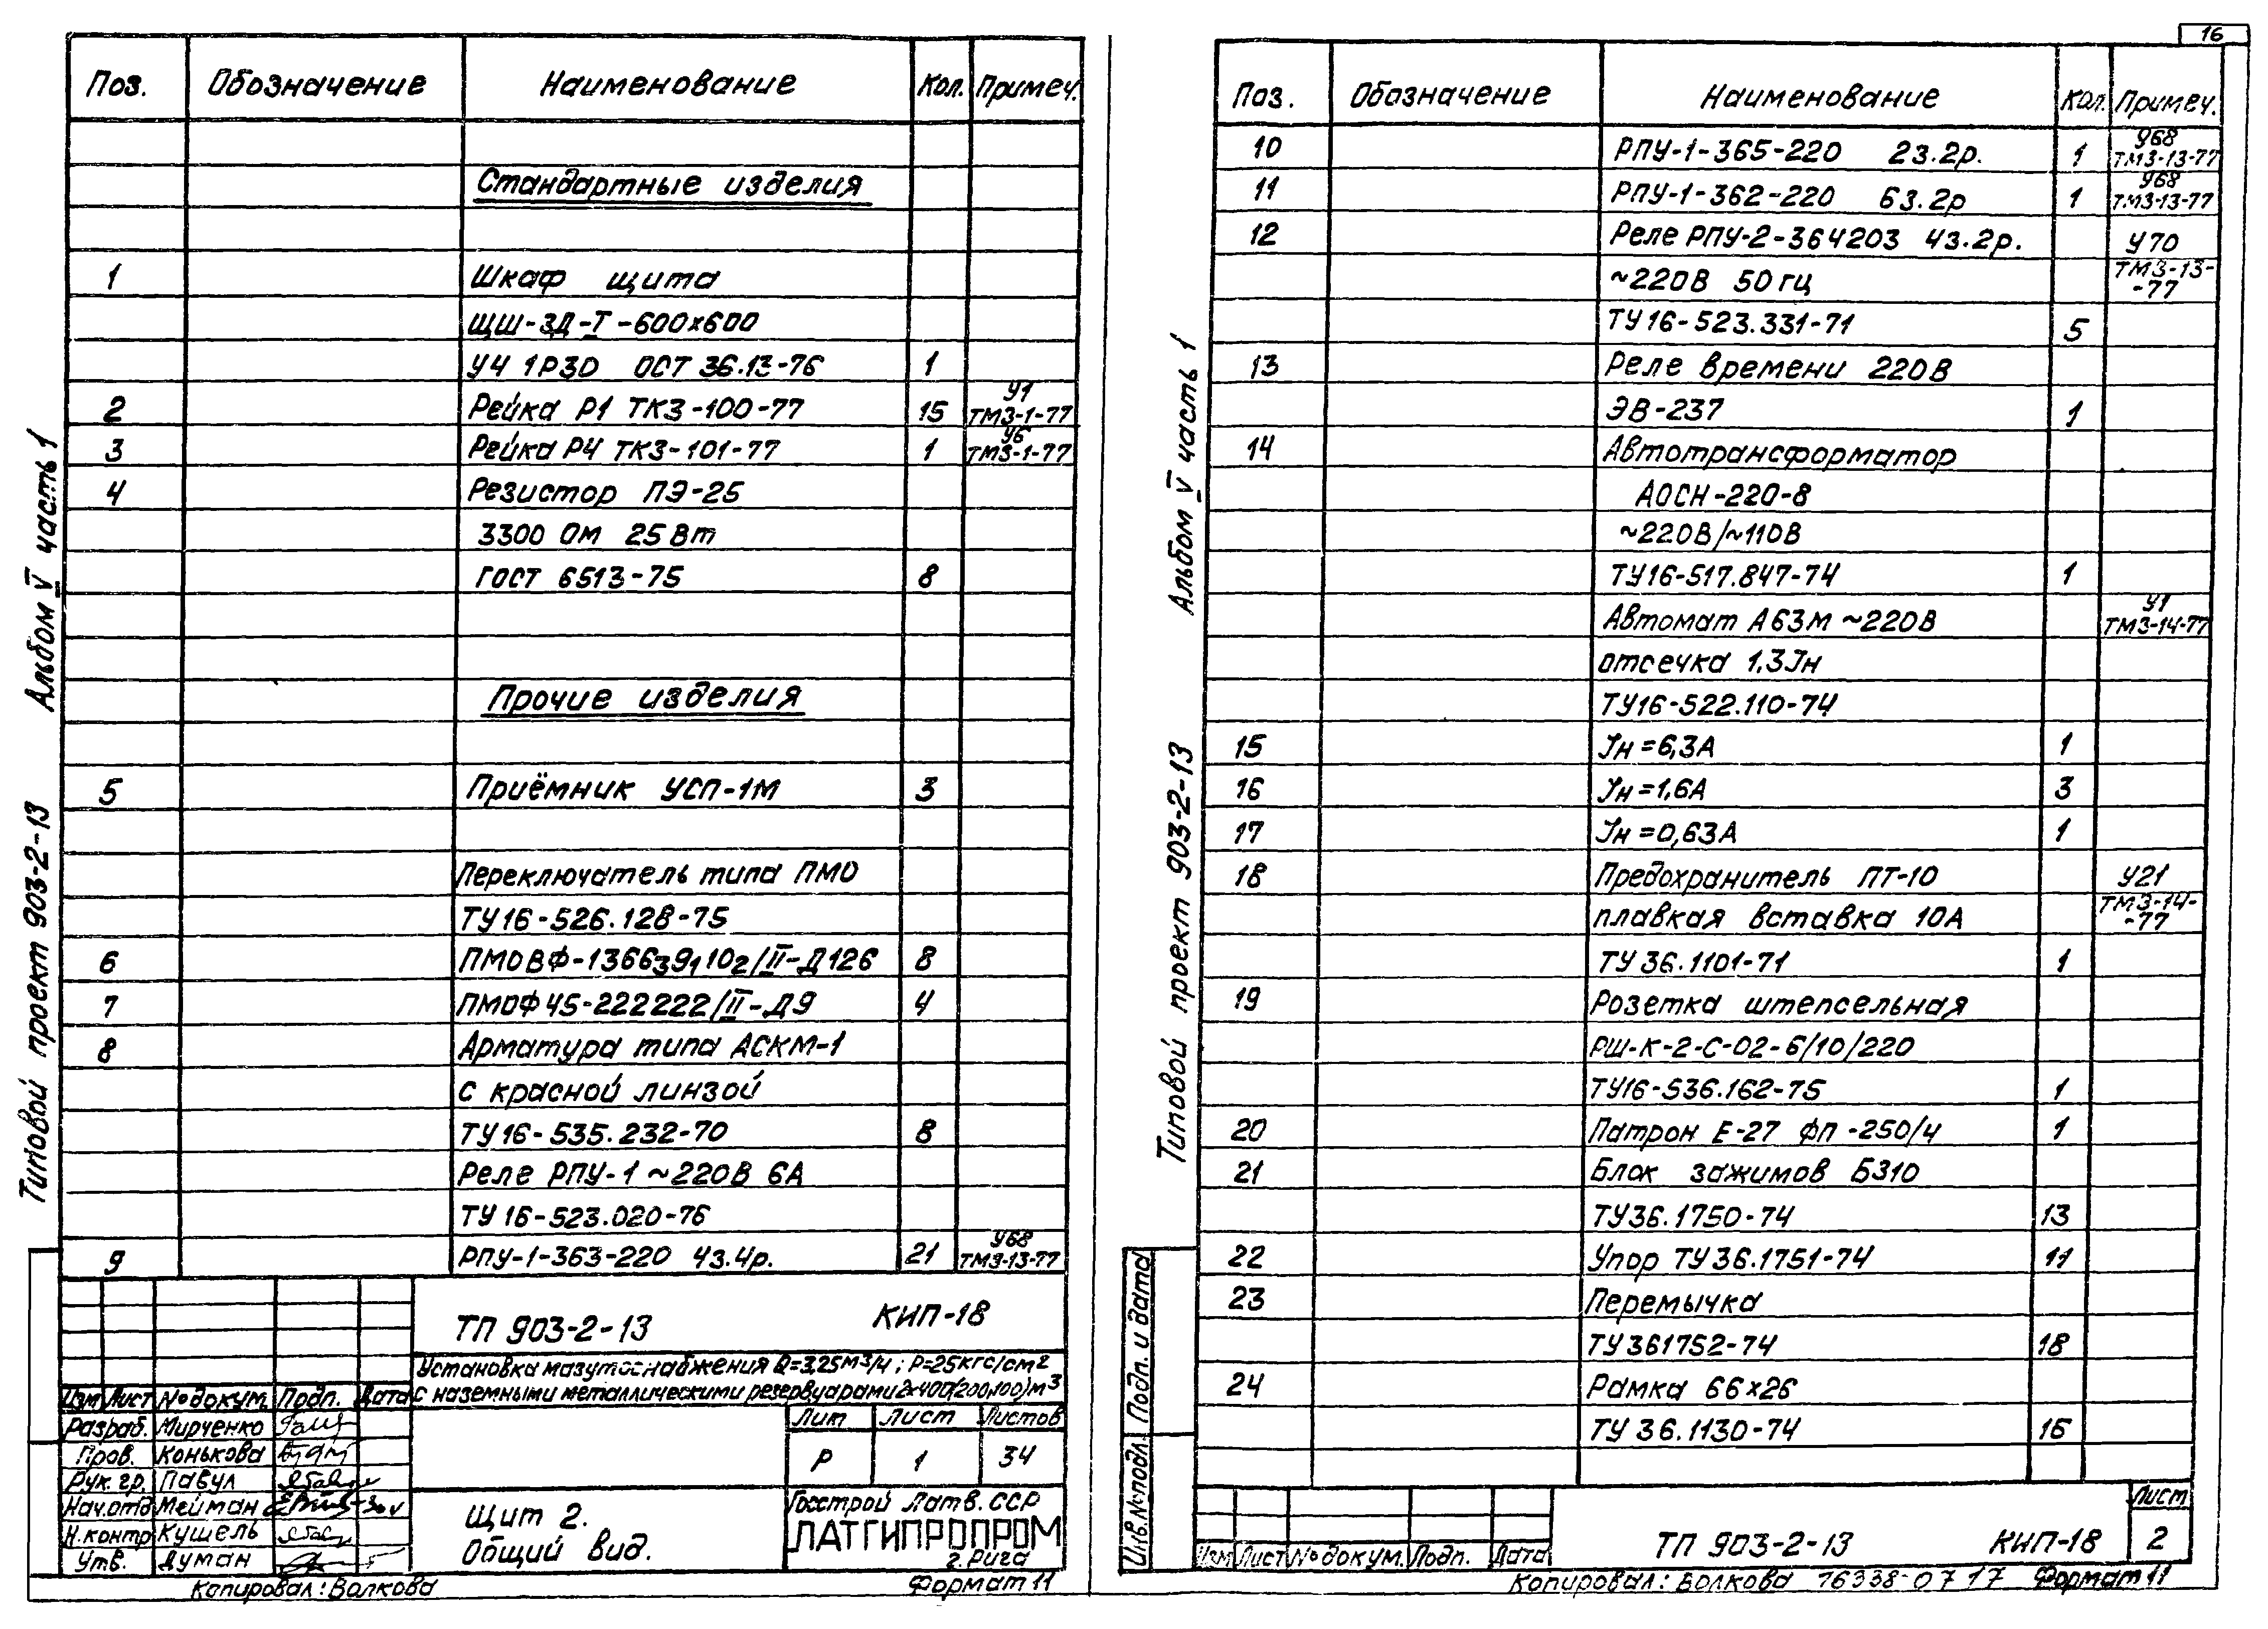 16
Поз. Обозначение Наименование Кол. Примеч.
Стандартные изделия
1 Шкаф щита
ЩШ-ЗД-I-600х600
У4 1Р30 ОСТ 36.13-76 1
2 Рейка Р1 ТК3-100-77 15 У1 ТМ3-1-77
3 Рейка Р4 ТК3-101-77 1 У6 ТМ3-1-77
4 Резистор ПЭ-25
3300 Ом 25 Вт
ГОСТ 6513-75 8
Прочие изделия
5 Приёмник УСП-1М 3
Переключатель типа ПМО
ТУ 16-526.128-75
6 ПМОВФ-1366391102/II-Д126 8
7 ПМОФ45-222222/II-Д9 4
8 Арматура типа АСКМ-1
с красной линзой
ТУ 16-535.232-70 8
Реле РПУ-1 ~220В 6А
ТУ 16-523.020-76
9 РПУ-1-363-220 4з.4р. 21 У68 ТМ3-13-77
Типовой проект 903-2-13 Альбом V часть 1
ТП 903-2-13 КИП-18
Установка мазутоснабжения Q=3,25м3/ч; Р=25кгс/см2
с наземными металлическими резервуарами 2х400(200,100)м3
Изм Лист № докум. Подп. Дата
Разраб. Мирченко
Пров. Конькова
Рук. гр. Павул
Нач.отд Мейман
Н.контр Кушель
Утв. Думан
Лит Лист Листов
Р 1 34
Щит 2.
Общий вид.
Госстрой Латв. ССР
ЛАТГИПРОПРОМ
г. Рига
Копировал: Волкова Формат 11
Поз. Обозначение Наименование Кол. Примеч.
10 РПУ-1-365-220 2з.2р. 1 У68 ТМ3-13-77
11 РПУ-1-362-220 6з.2р 1 У68 ТМ3-13-77
12 Реле РПУ-2-364203 4з.2р. У70
~220В 50 гц ТМ3-13-
-77
ТУ 16-523.331-71 5
13 Реле времени 220В
ЭВ-237 1
14 Автотрансформатор
АОСН-220-8
~220В/~110В
ТУ16-517.847-74 1
Автомат А63М ~220В У1 ТМ3-14-77
отсечка 1.3Iн
ТУ16-522.110-74
15 Iн=6,3А 1
16 Iн=1,6А 3
17 Iн=0,63А 1
18 Предохранитель ПТ-10 У21
плавкая вставка 10А ТМ3-14-
-77
ТУ 36.1101-71 1
19 Розетка штепсельная
РШ-К-2-С-02-6/10/220
ТУ16-536.162-75 1
20 Патрон Е-27 ФП-250/4 1
21 Блок зажимов Б310
ТУ36.1750-74 13
22 Упор ТУ 36.1751-74 11
23 Перемычка
ТУ 361752-74 18
24 Рамка 66х26
ТУ 36.1130-74 16
Типовой проект 903-2-13 Альбом V часть 1
Инв.№ подл. Подп. и дата
Изм Лист № докум. Подп. Дата
ТП 903-2-13 КИП-18
Лист
2
Копировал: Волкова 16338-07 17 Формат 11